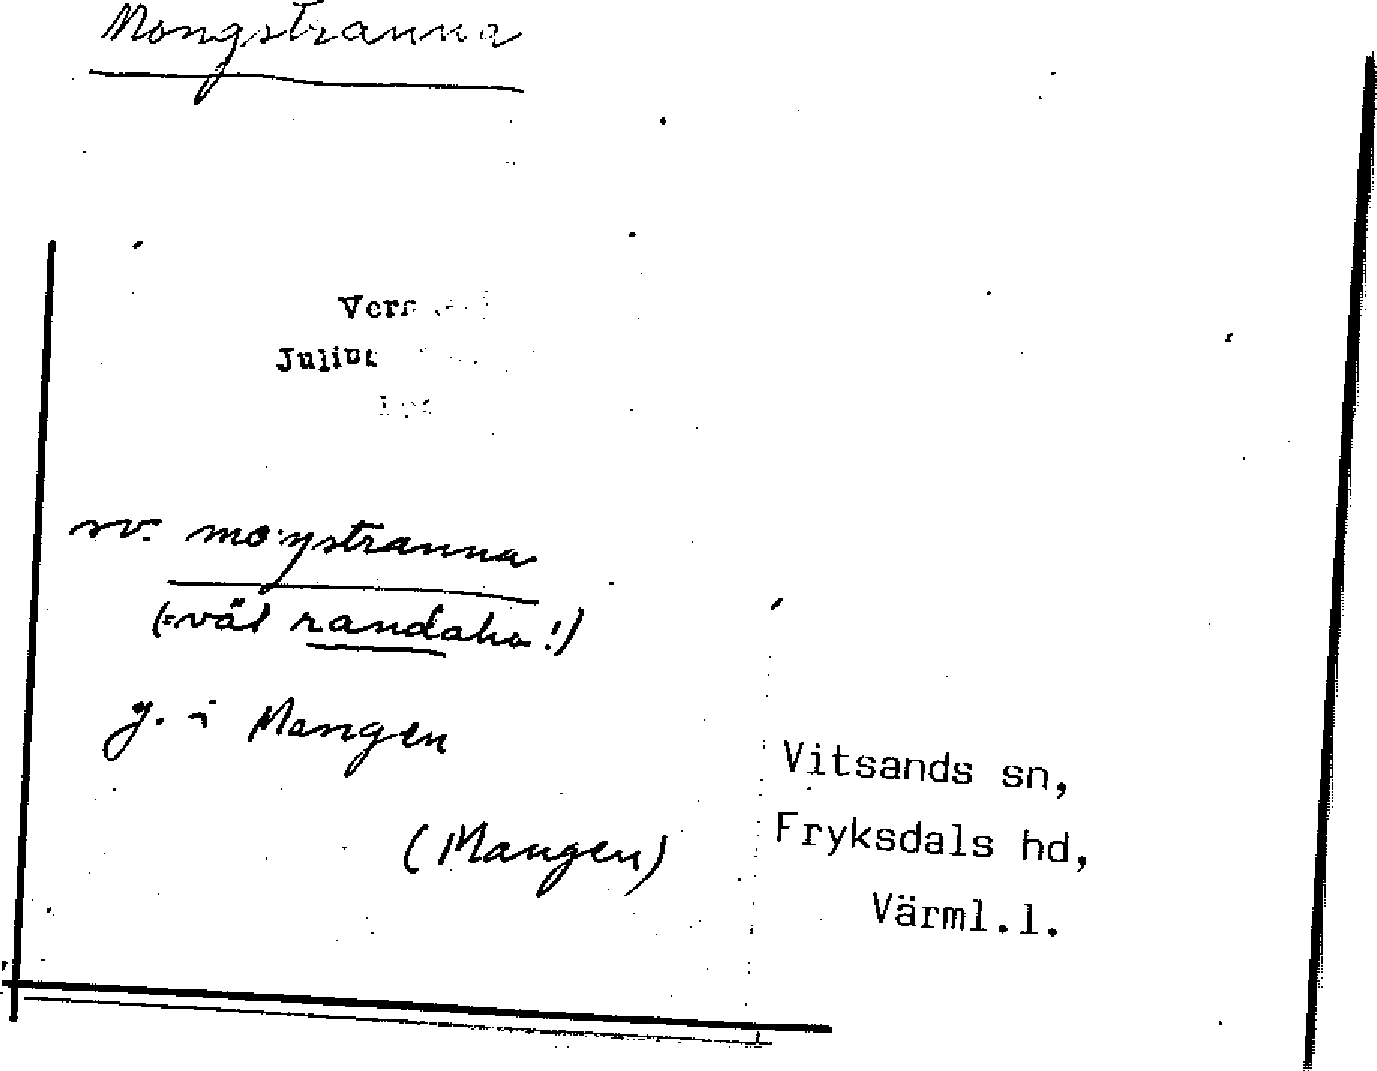 Mongstranna
Julius
sv. mo·ŋstranna
(=väl randaho!)
g. i Mangen
(Mangen)
Vitsands sn,
Fryksdals hd,
Värml.l.